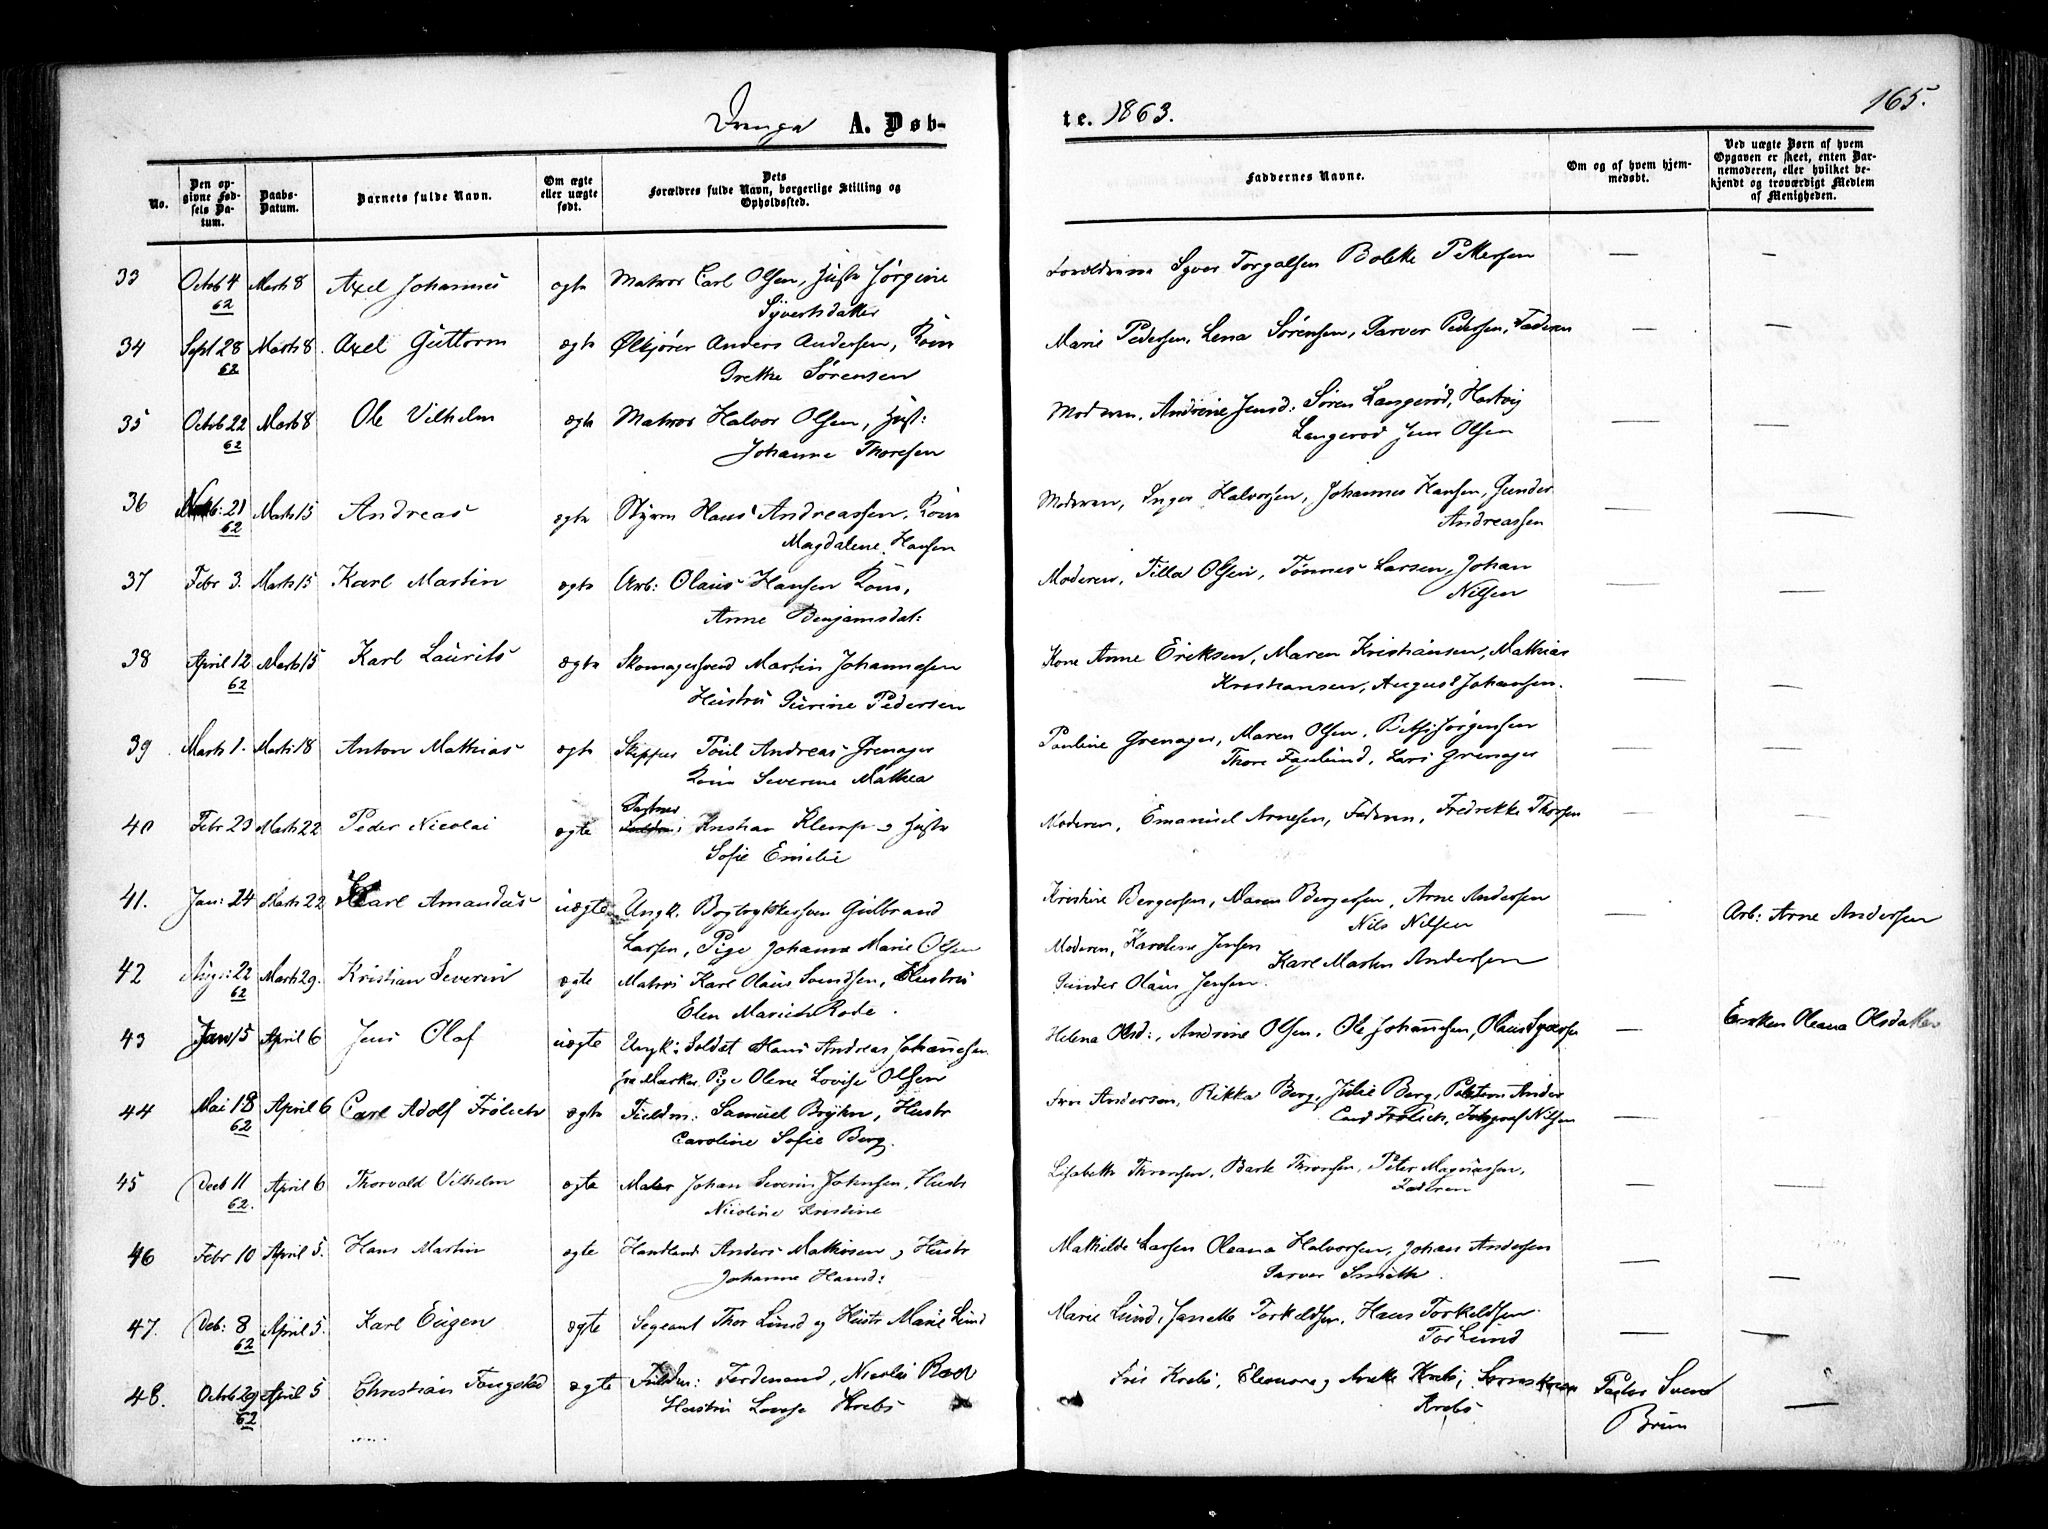 A. Døb-
te. 1863.
165.
No.
Den op-
givne Fød-
sels Da-
tum.
Daabs-
Datum.
Barnets fulde Navn.
Om ægte
eller uægte
født.
Dets
Forældres fulde Navn, borgerlige Stilling og
Opholdssted.
Faddernes Navne.
Om og af hvem hjem-
medøbt.
Ved uægte Børn af hvem
Opgaven er skeet, enten Bar-
nemoderen, eller hvilket be-
kjendt og troværdigt Medlem
af Menigheden.
33 Octob 4 Marts 8 Axel Johannes ægte Matros Carl Olsen, Hustr Jørgine
62 Syvertsdatter
Syver Torgalsen Pettersen — —
34 Sept 28 Marts 8. Axel Guttorm ægte Anders Andersen, Kone
62 Grethe Sørensen
Marie Pedersen, Lena Sørensen, Sarver Pedersen, Faderen — —
35 Octob 22 Marts 8 Ole Vilhelm ægte Matros Halvor Olsen, Hust:
62 Johanne Thoresen
Moderen, Andrine Jensd: Søren Langerød, Hartvig
Langerød Jens Olsen — —
36 21 Marts 15 Andreas ægte Styrm Hans Andreassen, Kone
62 Magdalene Hansen
Moderen, Inger Halvorsen, Johannes Hansen, Gunder
Andreassen — —
37 Febr 3. Marts 15 Karl Martin ægte Arb: Olaus Hansen Kone,
Anne Benjamsdat:
Moderen, Tilla Olsen, Tønnes Larsen, Johan
Nilsen — —
38 April 12 Marts 15 Karl Laurits ægte Skomagersvend Martin Johannesen
62 Hustru Gurine Pedersen
Kone Anne Eriksen, Maren Kristiansen, Mathias
Kristiansen, August Johansen. — —
39 Marts 1. Marts 18 Anton Mathias ægte Skipper Poul Andreas Grenager
Kone Severine Mathea
Pauline Grenager, Maren Olsen, Betsi Jørgensen
Thore Fagelund, Lars Grenager — —
40 Febr 23 Marts 22 Peder Nicolai ægte Kristian Klemp og Hustr
Sofie Emelie
Moderen, Emanuel Arnesen, Faderen, Fredrikke Thorsen — —
41. Jan: 24 Marts 22 Karl Amandus uægte Ungk. Bogtrykkersven Gulbrand
Larsen, Pige Johanne Marie Olsen
Kristine Bergersen, Maren Bergersen, Arne Andersen
Nils Nilsen — Arb: Arne Andersen
42 Aug: 22 Marts 29. Kristian Severin ægte Matros Karl Olaus Svendsen, Hustru
62 Elen Marie Rode.
Moderen, Karoline Jensen Karl Martin Andersen
Gunder Olaus Jensen.
43 Jan 15 April 6 Jens Olaf uægte Ungk: Soldat Hans Andreas Johannesen
fra Marker, Pige Olene Lovise Olsen
Helena Olsd:, Andrine Olsen, Ole Johannesen, Olaus — Enken Oleana Olsdatter
44 Mai 18 April 6 Carl Adolf Frølich ægte Samuel Bryhn, Hustr
62 Caroline Sofie Berg.
Andersen, Rikka Berg, Julie Berg, Ander
Carl Frølich, Nilsen — —
45 Decb 11 April 6 Thorvald Vilhelm ægte Maler Johan Severin Johnsen, Hustr
62. Nicoline Kristine
Lisabeth Thronsen, Thronsen, Peter Magnussen,
Faderen — —
46 Febr 10 April 5. Hans Martin ægte Handland Anders Mathisen og Hustr
Johanne Hansd:
Mathilde Larsen Oleana Halvorsen, Johan Andersen
Sarver Smith. — —
47. Deb: 8 April 5. Karl Eugen ægte Segeant Thor Lund og Hustr Marie Lund
62
Marie Lund, Janette Torkeldsen, Hans Torkeldsen
Tor Lund — —
48. Octob 29 April 5 Christian ægte Ferdinand, Nicolai
62 Hustru Lovise Krebs
Krebs, Eleonora og Krebs,
Krebs Pastor Svend
Brun —